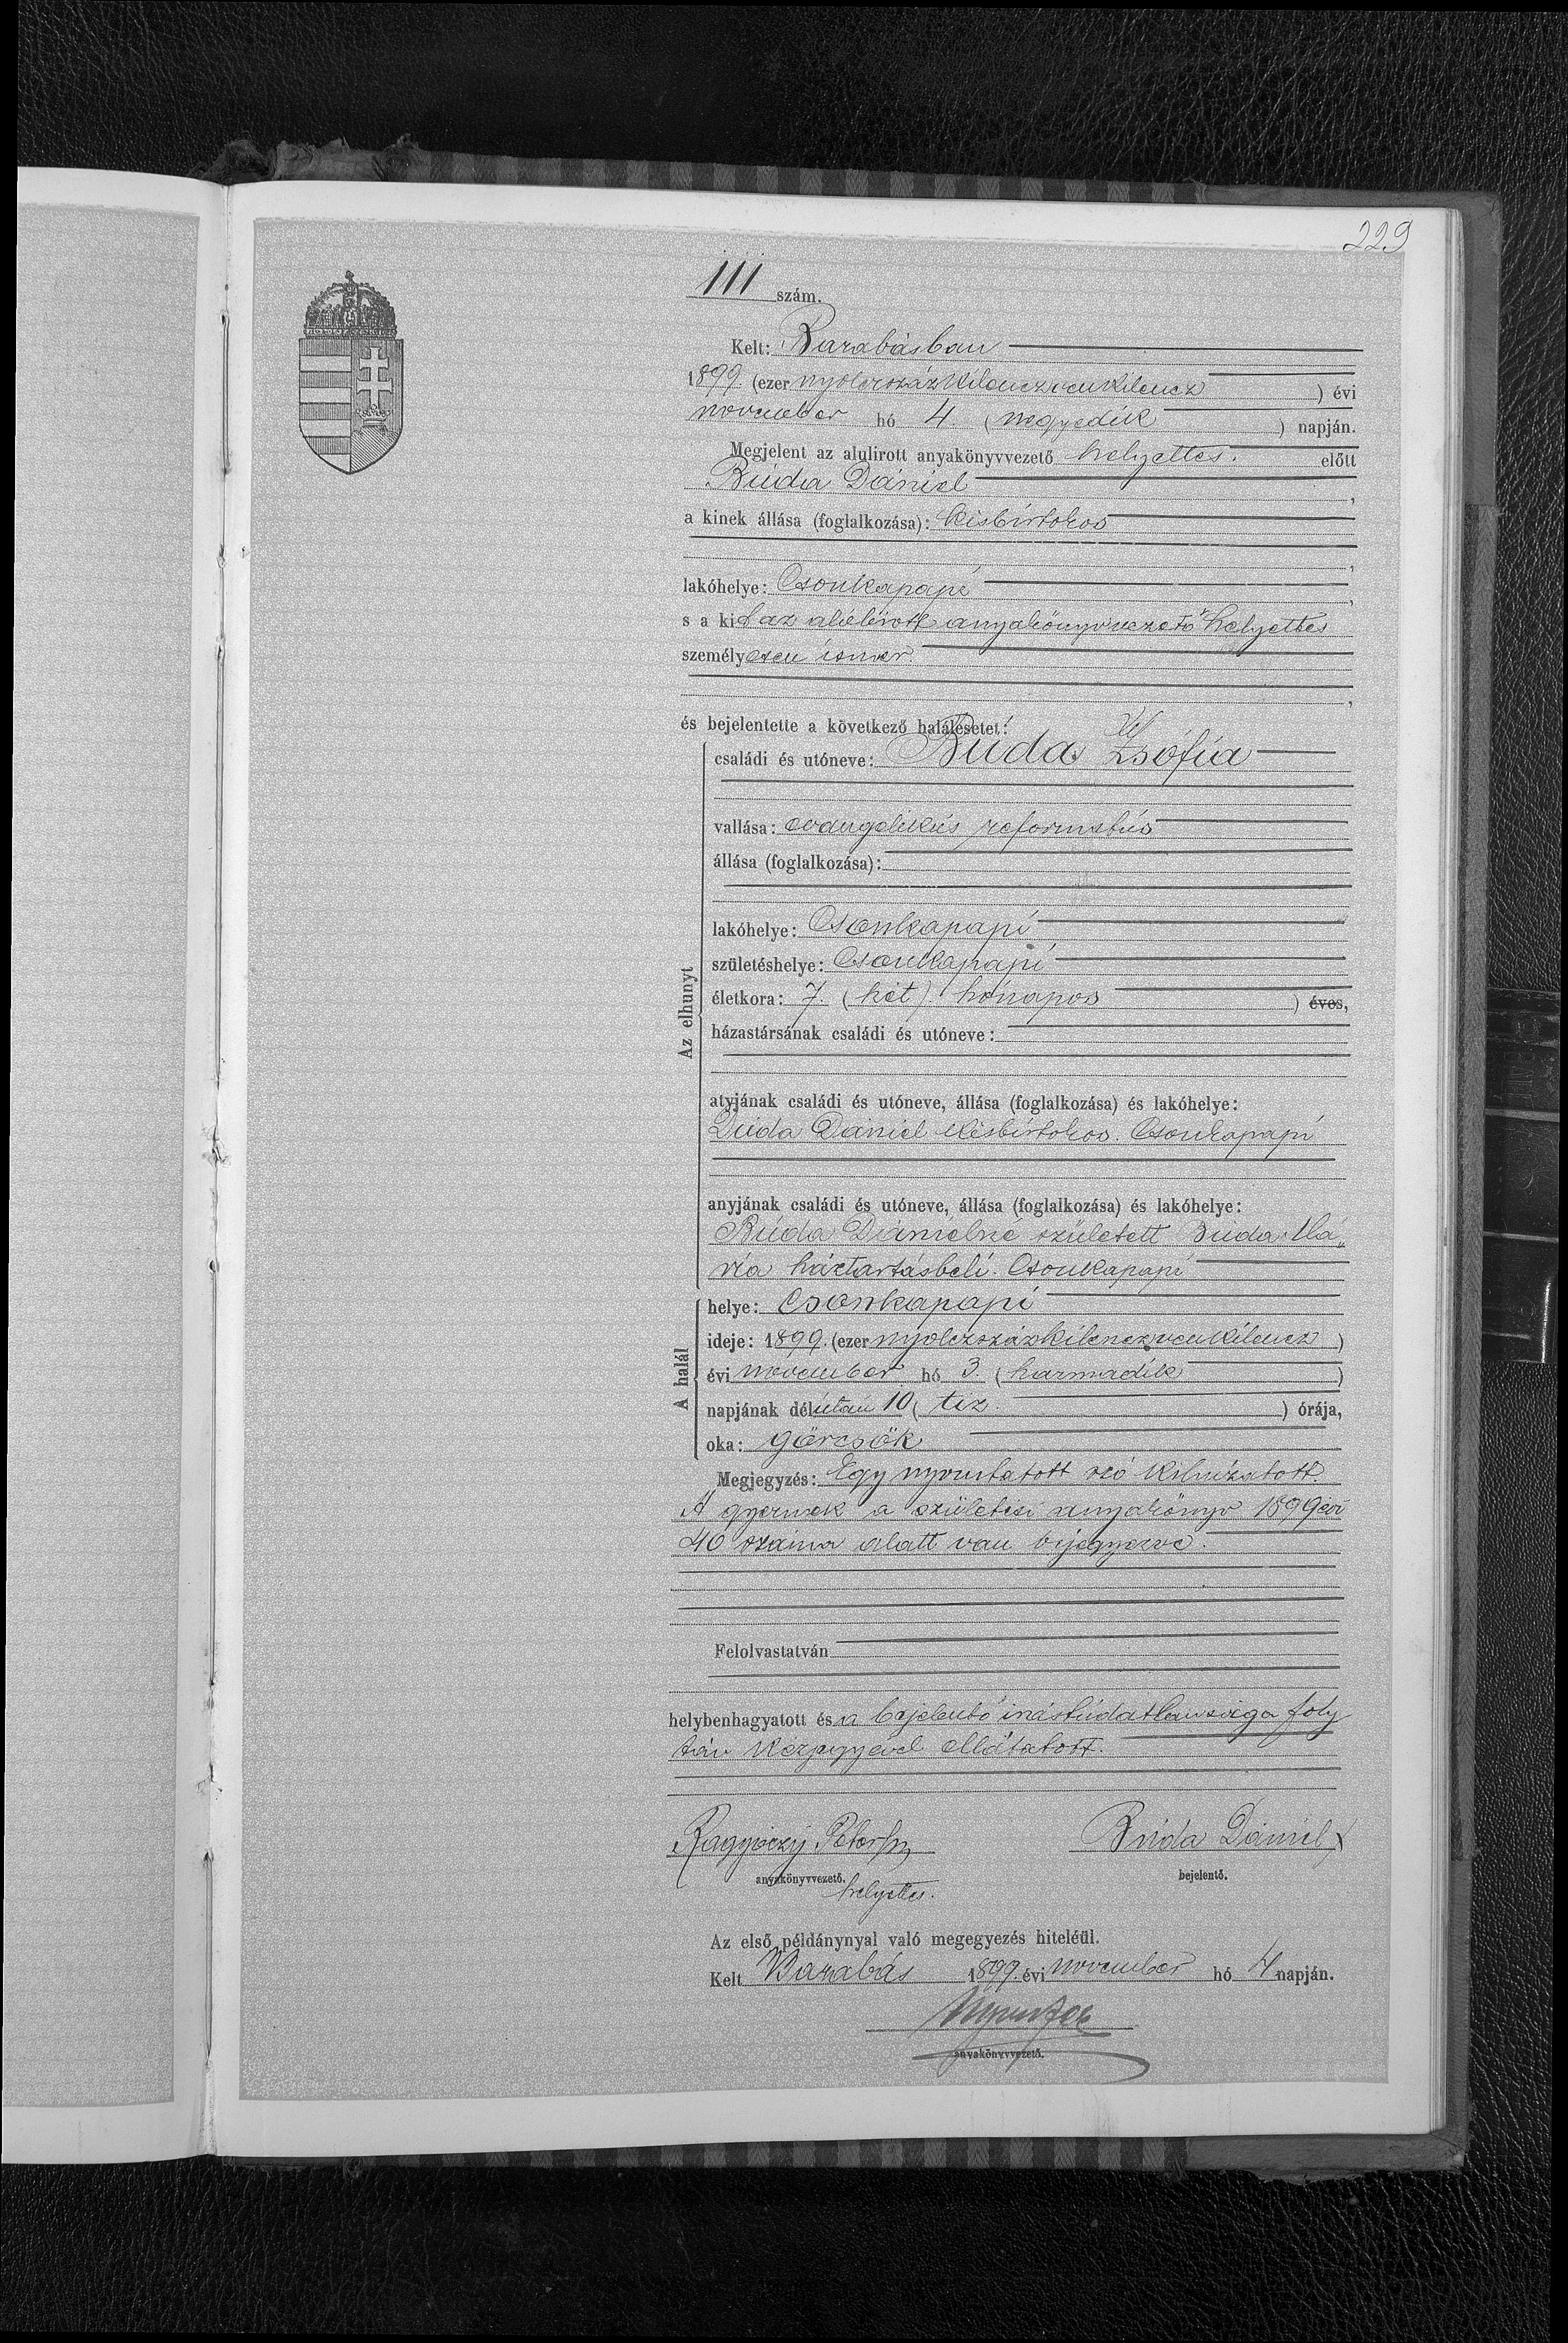 229
111 szám.
Kelt: Barabásban
1899. (ezer nyolczszázkilenczvenkilencz ) évi
november hó 4. (negyedik ) napján.
Megjelent az alulirott anyakönyvvezető helyettes. előtt
Búda Dániel ,
a kinek állása (foglalkozása): kisbirtokos
,
lakóhelye: Csonkapapi ,
s a kit az alulírott anyakönyvvezető helyettes
személyesen ismer.
,
és bejelentette a következő halálesetet:
családi és utóneve: Búda Zsófia
vallása: evangelikús reformatús
állása (foglalkozása):
lakóhelye: Csonkapapi
születéshelye: Csonkapapi
életkora: 7. (hét). hónapos ) éves,
házastársának családi és utóneve:
Az elhunyt
atyjának családi és utóneve, állása (foglalkozása) és lakóhelye:
Búda Dániel kisbirtokos. Csonkapapi
anyjának családi és utóneve, állása (foglalkozása) és lakóhelye:
Búda Dánielné született Búda Má„
ria háztartásbeli. Csonkapapi
helye: Csonkapapi
ideje: 1899. (ezer nyolczszázkilenczvenkilencz )
évi november hó 3. (harmadik )
A halál
napjának délután 10 (tiz. ) órája,
oka: görcsök
Megjegyzés: Egy nyomtatott szó kihúzatott.
A gyermek a születési anyakönyv 1899 évi
40 száma alatt van bejegyezve.
Felolvastatván
helybenhagyatott és a bejelentő irástúdatlansága foly
tán kézjegyével elláttatott.
Péter Búda Dániel X
anyakönyvvezető. bejelentő.
helyettes.
Az első példánynyal való megegyezés hiteléül.
Kelt Barabás 1899. évi november hó 4 napján.
anyakönyvvezető.